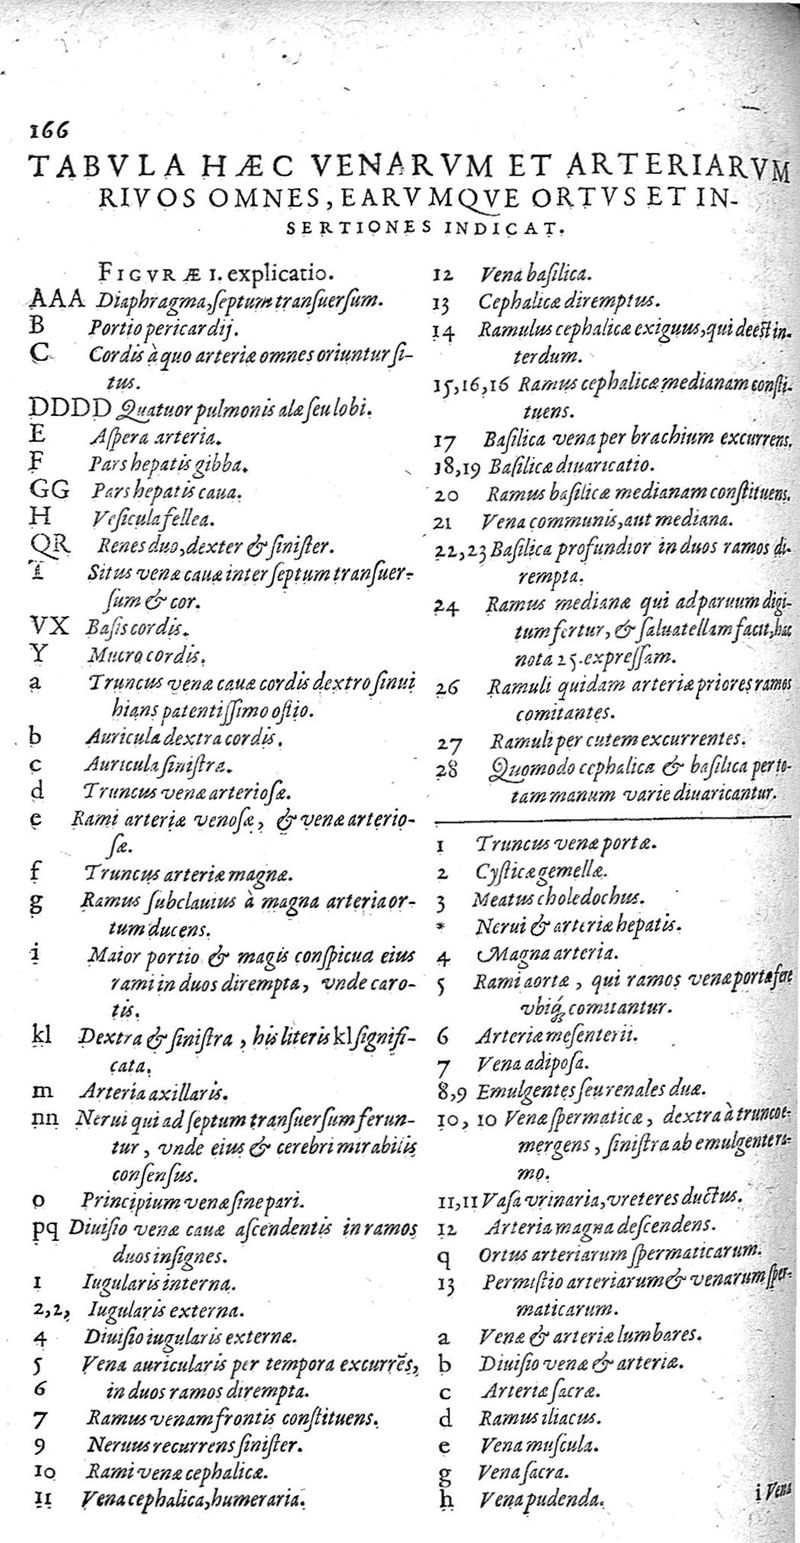 166
TABVLA HÆC VENARVM ET ARTERIARVM
RIVOS OMNES, EARVMQVE ORTVS ET IN-
SERTIONES INDICAT.
FIGVRÆ 1. explicatio.
AAA Diaphragma, ſeptum tranſuerſum.
B Portio pericardij.
C Cordis à quo arteriæ omnes oriuntur ſi-
tus.
DDDD Quatuor pulmonis alæ ſeu lobi.
E Aſpera arteria.
F Pars hepatis gibba.
GG Pars hepatis caua.
H Veſicula fellea.
QR Renes duo, dexter & ſiniſter.
T Situs venæ cauæ inter ſeptum tranſuer-
ſum & cor.
VX Baſis cordis.
Y Mucro cordis.
a Truncus venæ cauæ cordis dextro ſinui
hians patentiſſimo oſtio.
b Auricula dextra cordis.
c Auricula ſiniſtra.
d Truncus venæ arterioſæ.
e Rami arteriæ venoſæ, & venæ arterio-
ſæ.
f Truncus arteriæ magnæ.
g Ramus ſubclauius à magna arteria or-
tum ducens.
i Maior portio & magis conſpicua eius
rami in duos dirempta, vnde caro-
tis.
kl Dextra & ſiniſtra, his literis kl ſignifi-
cata.
m Arteria axillaris.
nn Nerui qui ad ſeptum tranſuerſum ferun-
tur, vnde eius & cerebri mirabilis
conſenſus.
o Principium venæ ſine pari.
pq Diuiſio venæ cauæ aſcendentis in ramos
duos inſignes.
1 Iugularis interna.
2,2, Iugularis externa.
4 Diuiſio iugularis externæ.
5 Vena auricularis per tempora excurrẽs,
6 in duos ramos dirempta.
7 Ramus venam frontis conſtituens.
9 Neruus recurrens ſiniſter.
10 Rami venæ cephalicæ.
11 Vena cephalica, humeraria.
12 Vena baſilica.
13 Cephalicæ diremptus.
14 Ramulus cephalicæ exiguus, qui deeſt in-
terdum.
15,16,16 Ramus cephalicæ medianam conſti-
tuens.
17 Baſilica vena per brachium excurrens.
18,19 Baſilicæ diuaricatio.
20 Ramus baſilicæ medianam conſtituens.
21 Vena communis, aut mediana.
22,23 Baſilica profundior in duos ramos di-
rempta.
24 Ramus medianæ qui ad paruum digi-
tum fertur, & ſaluatellam facit, hac
nota 25. expreſſam.
26 Ramuli quidam arteriæ priores ramos
comitantes.
27 Ramuli per cutem excurrentes.
28 Quomodo cephalica & baſilica per to-
tam manum varie diuaricantur.
1 Truncus venæ portæ.
2 Cyſticæ gemellæ.
3 Meatus choledochus.
* Nerui & arteriæ hepatis.
4 Magna arteria.
5 Rami aortæ, qui ramos venæ portæ fere
vbiq; comitantur.
6 Arteriæ meſenterii.
7 Vena adipoſa.
8,9 Emulgentes ſeu renales duæ.
10, 10 Venæ ſpermaticæ, dextra à trunco e-
mergens, ſiniſtra ab emulgente ra-
mo.
11,11 Vaſa vrinaria, vreteres ductus.
12 Arteria magna deſcendens.
q Ortus arteriarum ſpermaticarum.
13 Permiſtio arteriarum & venarum ſper-
maticarum.
a Venæ & arteriæ lumbares.
b Diuiſio venæ & arteriæ.
c Arteriæ ſacræ.
d Ramus iliacus.
e Vena muſcula.
g Vena ſacra.
h Vena pudenda.
i Vena